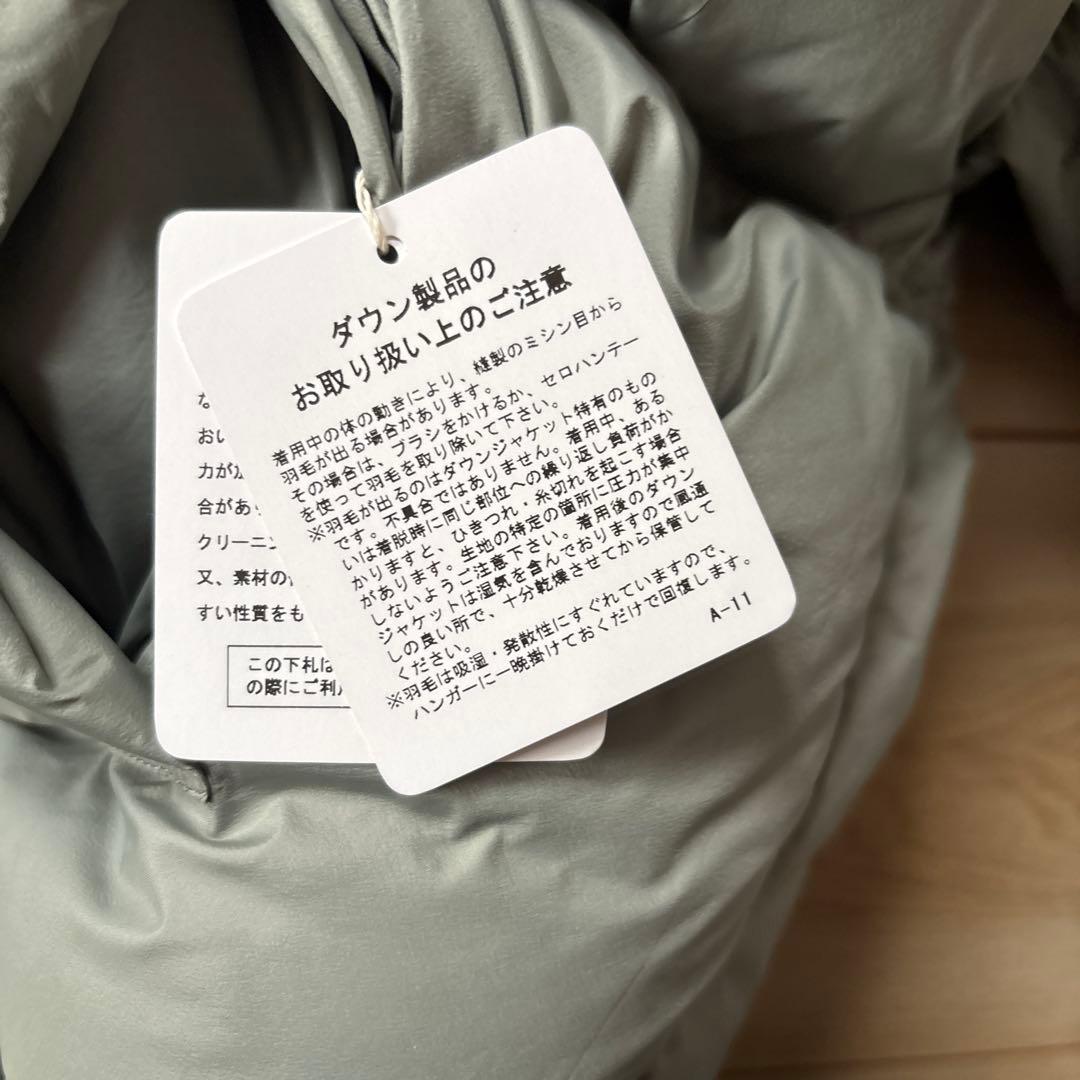 ダウン製品の
お取り扱い上のご注意
着用中の体の動きにより、縫製のミシン目から
羽毛が出る場合があります。
その場合は、ブラシをかけるか、セロハンテー
を使って羽毛を取り除いて下さい。
※羽毛が出るのはダウンジャケット特有のもの
です。不具合ではありません。着用中、ある
いは着脱時に同じ部位への繰り返し負荷がか
かりますと、ひきつれ・糸切れを起こす場合
があります。生地の特定の箇所に圧力が集中
しないようご注意下さい。着用後のダウン
ジャケットは湿気を含んでおりますので風通
しの良い所で、十分乾燥させてから保管して
ください。
※羽毛は吸湿・発散性にすぐれていますので、
ハンガーに一晩掛けておくだけで回復します。
A-11
な
おい
力が
合があ
クリーニ
又、素材の
すい性質をも
この下札は
の際にご利